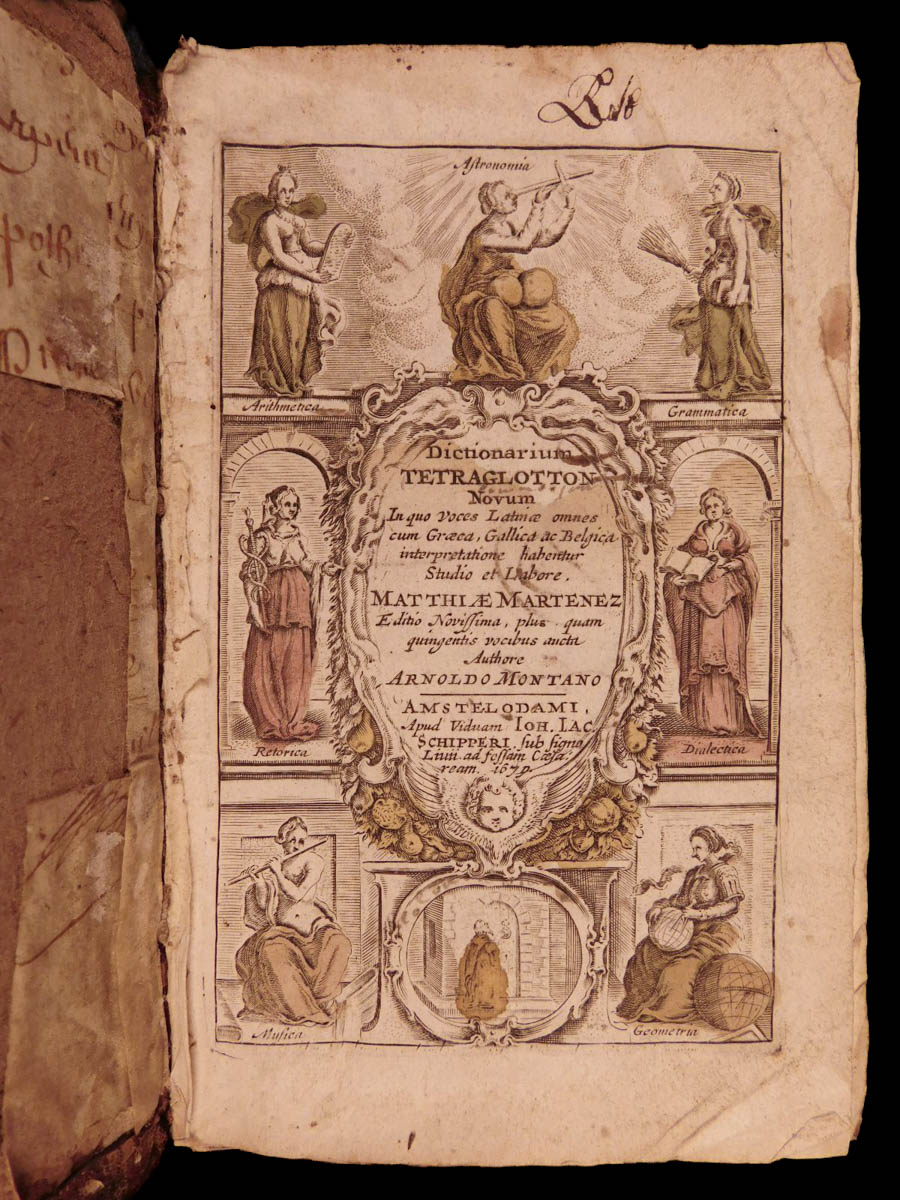 Astronomia
Arithmetica
Grammatica
Dictionarium
TETRAGLOTTON
Novum
In quo voces Latinæ omnes
cum Græca, Gallica ac Belgica
interpretatione habentur
Studio et Labore.
MATTHIÆ MARTENEZ
Editio Novissima, plus quam
quingentis vocibus aucta
Authore
ARNOLDO MONTANO
AMSTELODAMI,
Apud Viduam IOH. IAC.
SCHIPPERI. sub signo
Livii ad fossam Cæsa-
ream. 1679.
Retorica
Dialectica
Musica
Geometria